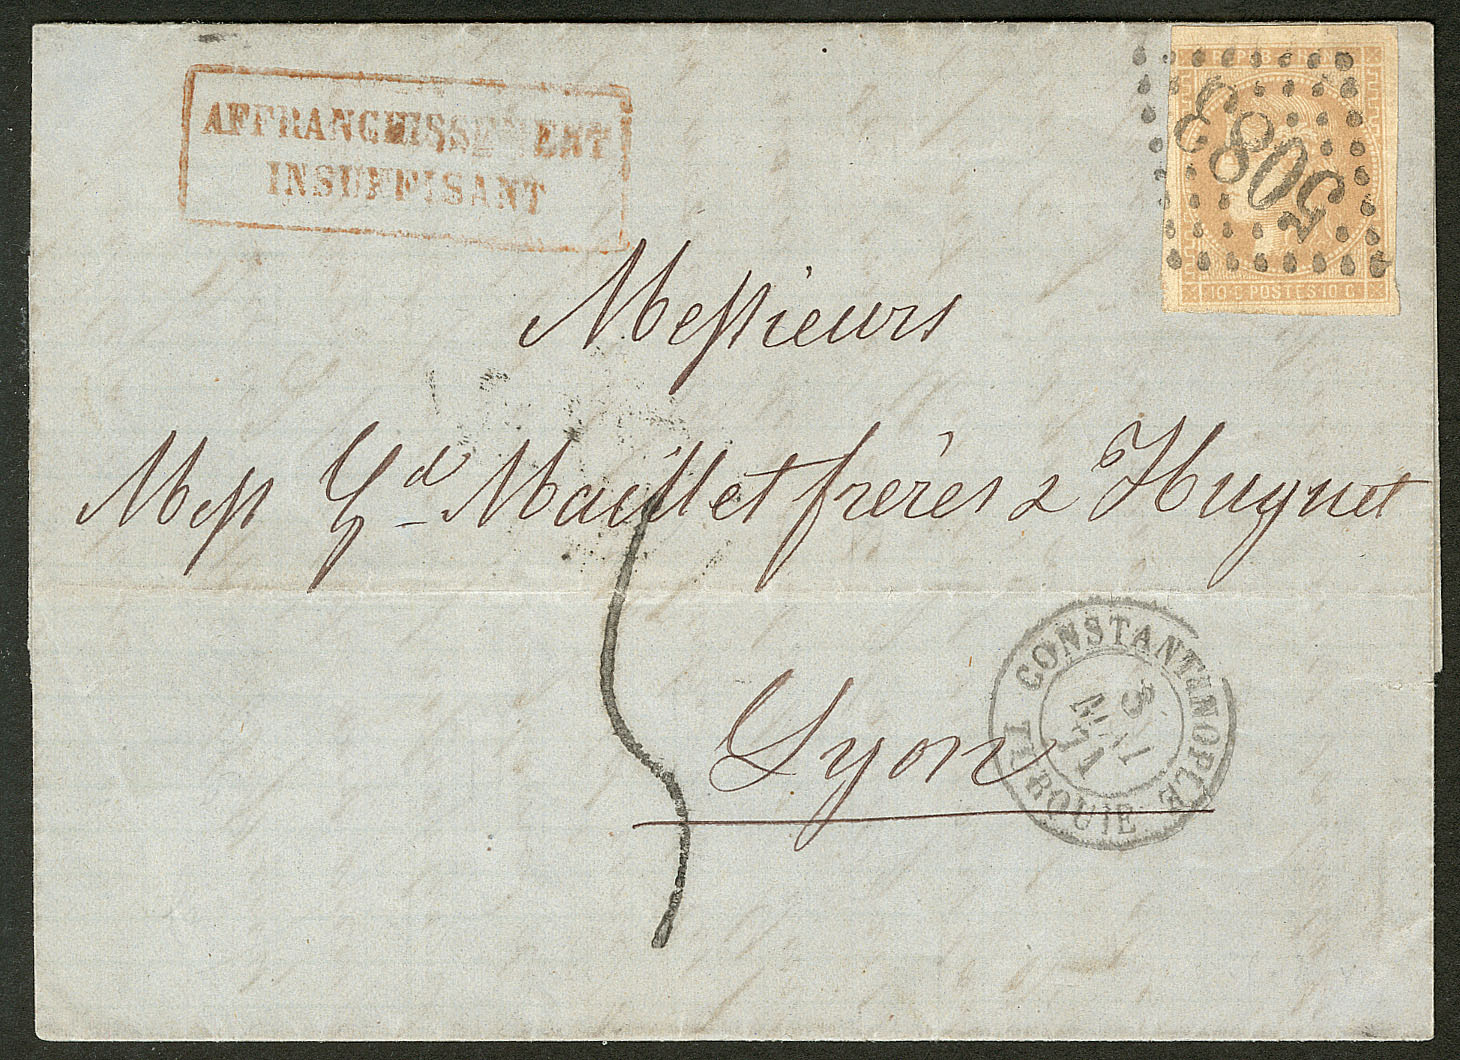 AFFRANCHISSEMENT
INSUFFISANT
REPUB FRANC
5083
10 C POSTES 10 C
Messieurs
Mess Gd Maillet frères & Huguet
Lyon
CONSTANTINOPLE
3
MAI
71
TURQUIE
5